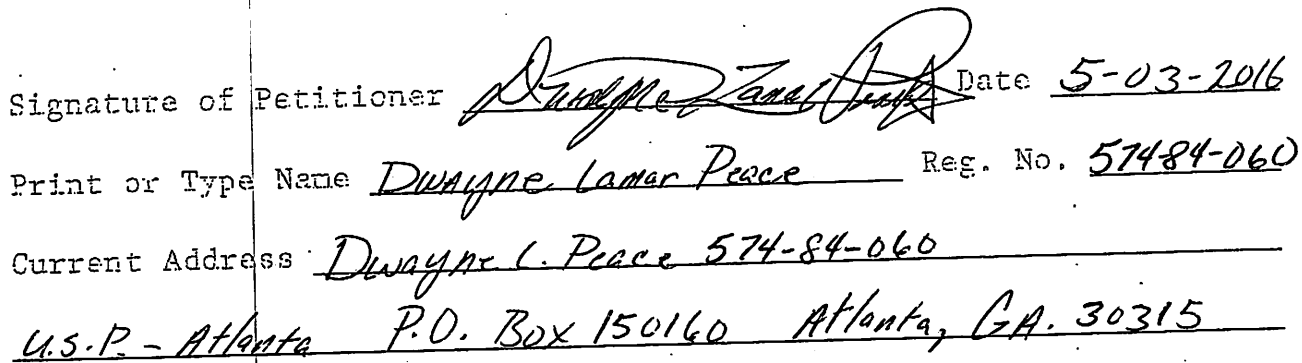 Signature of Petitioner Dwayne Lamar Peace Date 5-03-2016
Print or Type Name Dwayne Lamar Peace Reg. No. 57484-060
Current Address Dwayne L. Peace 574-84-060
U.S.P. - Atlanta P.O. Box 150160 Atlanta, GA. 30315